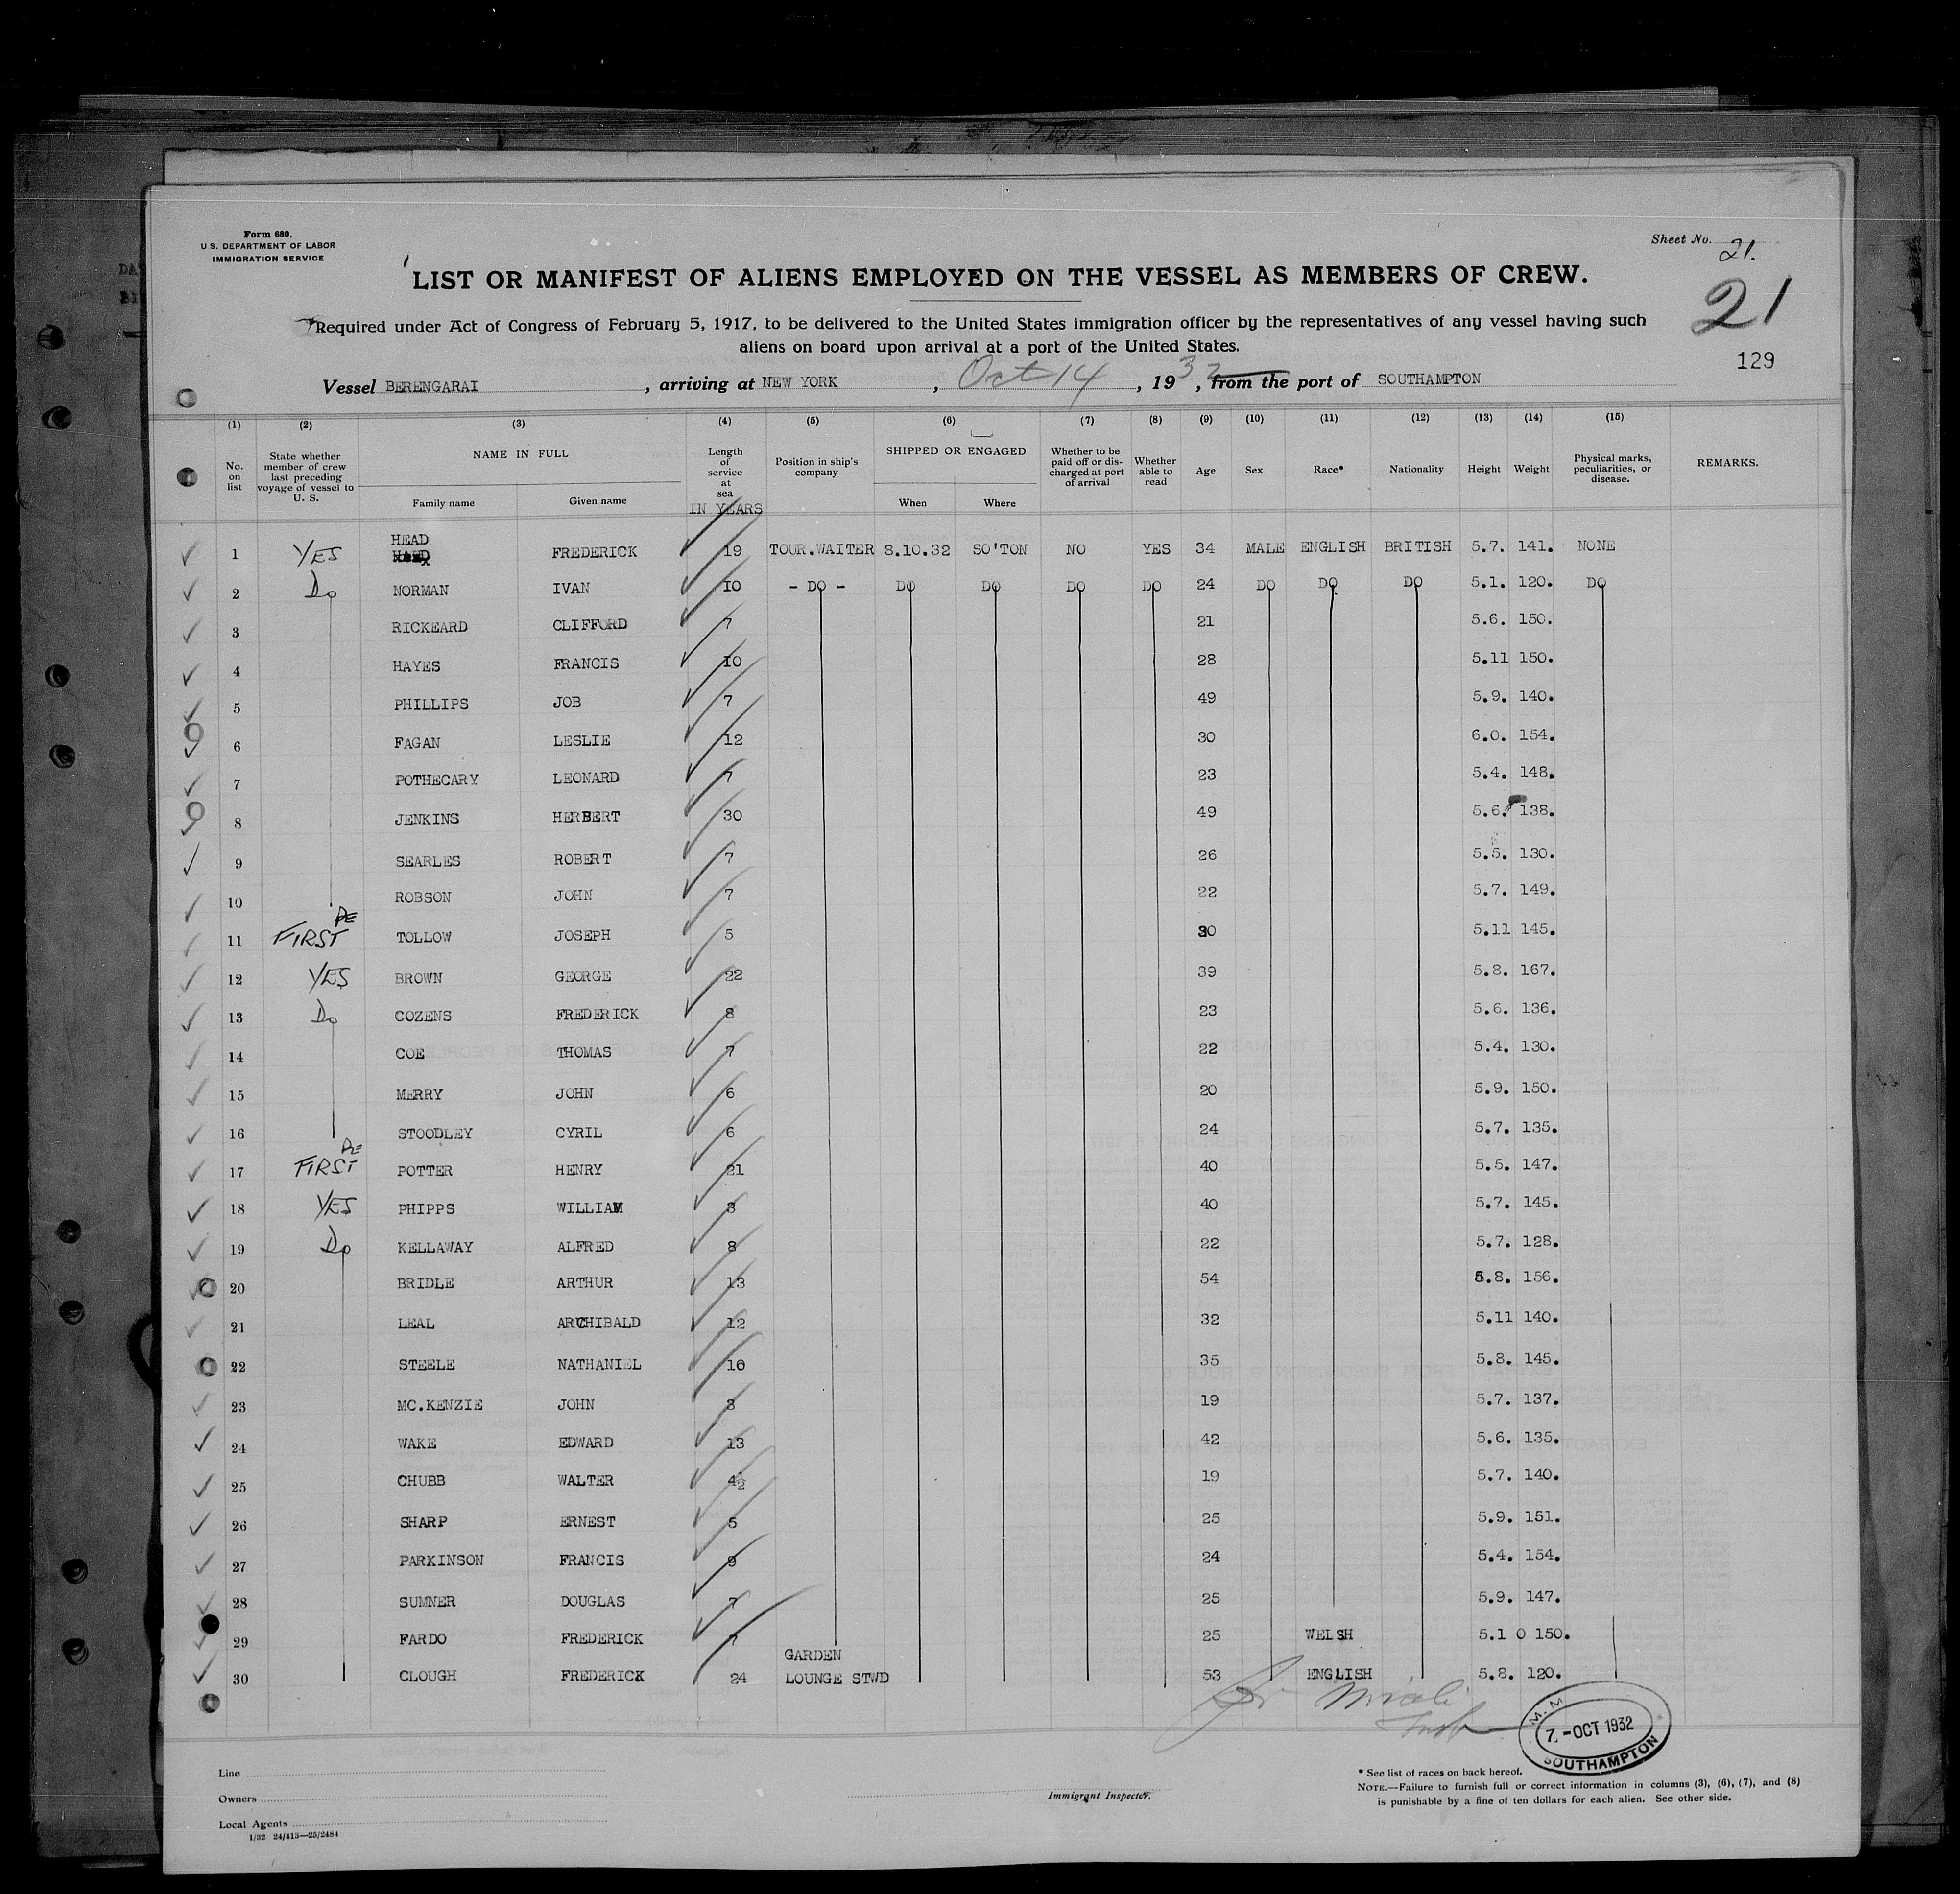 Form 680.
U.S. DEPARTMENT OF LABOR
IMMIGRATION SERVICE
Sheet No. 21.
LIST OR MANIFEST OF ALIENS EMPLOYED ON THE VESSEL AS MEMBERS OF CREW.
21
Required under Act of Congress of February 5, 1917, to be delivered to the United States immigration officer by the representatives of any vessel having such
aliens on board upon arrival at a port of the United States.
129
Vessel BERENGARAI, arriving at NEW YORK, Oct 14, 1932, from the port of SOUTHAMPTON
(1) (2) (3) (4) (5) (6) (7) (8) (9) (10) (11) (12) (13) (14) (15)
No. on list State whether member of crew last preceding voyage of vessel to U. S. NAME IN FULL Family name Given name Length of service at sea IN YEARS Position in ship's company SHIPPED OR ENGAGED When Where Whether to be paid off or discharged at port of arrival Whether able to read Age Sex Race* Nationality Height Weight Physical marks, peculiarities, or disease. REMARKS.
1 YES HEAD FREDERICK 19 TOUR.WAITER 8.10.32 SO'TON NO YES 34 MALE ENGLISH BRITISH 5.7. 141. NONE
2 Do NORMAN IVAN 10 - DO - DO DO DO DO 24 DO DO DO 5.1. 120. DO
3 RICKEARD CLIFFORD 7 21 5.6. 150.
4 HAYES FRANCIS 10 28 5.11 150.
5 PHILLIPS JOB 7 49 5.9. 140.
6 FAGAN LESLIE 12 30 6.0. 154.
7 POTHECARY LEONARD 7 23 5.4. 148.
8 JENKINS HERBERT 30 49 5.6. 138.
9 SEARLES ROBERT 7 26 5.5. 130.
10 ROBSON JOHN 7 22 5.7. 149.
11 FIRST TOLLOW JOSEPH 5 30 5.11 145.
12 YES BROWN GEORGE 22 39 5.8. 167.
13 Do COZENS FREDERICK 8 23 5.6. 136.
14 COE THOMAS 7 22 5.4. 130.
15 MERRY JOHN 6 20 5.9. 150.
16 STOODLEY CYRIL 6 24 5.7. 135.
17 FIRST POTTER HENRY 21 40 5.5. 147.
18 YES PHIPPS WILLIAM 40 5.7. 145.
19 Do KELLAWAY ALFRED 8 22 5.7. 128.
20 BRIDLE ARTHUR 13 54 5.8. 156.
21 LEAL ARCHIBALD 12 32 5.11 140.
22 STEELE NATHANIEL 10 35 5.8. 145.
23 MC.KENZIE JOHN 19 5.7. 137.
24 WAKE EDWARD 13 42 5.6. 135.
25 CHUBB WALTER 4½ 19 5.7. 140.
26 SHARP ERNEST 5 25 5.9. 151.
27 PARKINSON FRANCIS 9 24 5.4. 154.
28 SUMNER DOUGLAS 7 25 5.9. 147.
29 FARDO FREDERICK 7 25 WELSH 5.1 0 150.
30 CLOUGH FREDERICK 24 GARDEN LOUNGE STWD 53 ENGLISH 5.8. 120.
M. M
7 -OCT 1932
SOUTHAMPTON
Line
Owners
Local Agents
1/32 24/413—25/2484
Immigrant Inspector.
* See list of races on back hereof.
NOTE.—Failure to furnish full or correct information in columns (3), (6), (7), and (8)
is punishable by a fine of ten dollars for each alien. See other side.